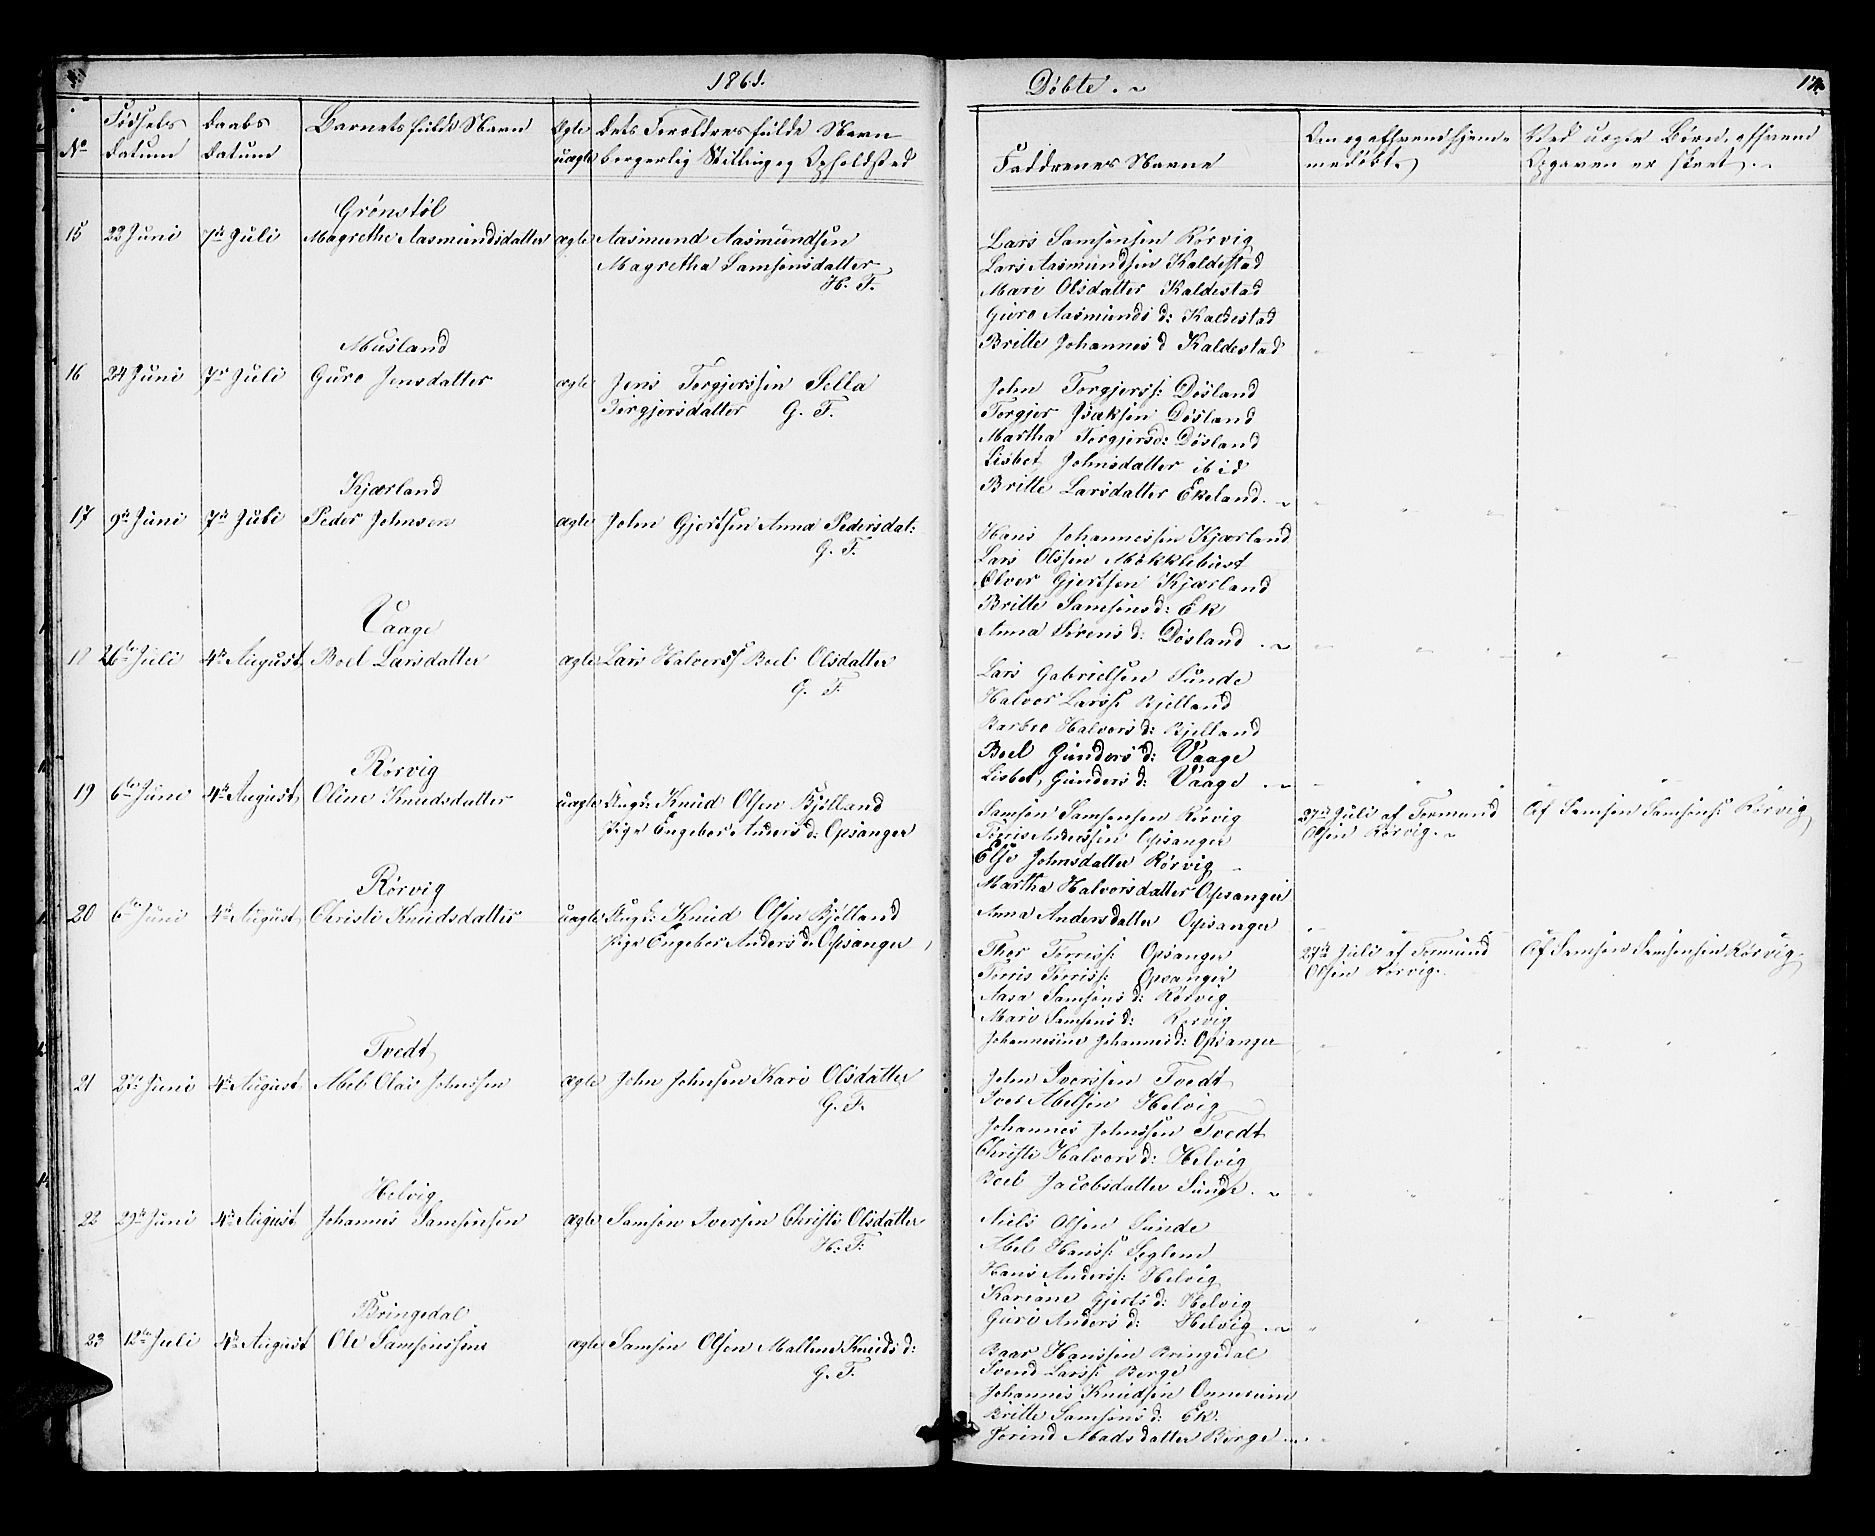 1861.
Døbte.
No
Fødsels Datum
Daabs Datum
Barnets fulde Navn
Ægte uægte
Dets Forældres fulde Navn borgerlig Stilling og Opholdsted
Faddrenes Navne
Om og af hvem hjemmedøbt
Ved uægte Børn, af hvem Opgaven er skeet
Grønstøl
15 22 Juni 7de Juli Magrethe Aasmundsdatter ægte Aasmund Aasmundsen
Magretha Samsonsdatter
H. F.
Lars Samsonsen Rørvig
Lars Aasmundsen Kaldestad
Mari Olsdatter Kaldestad
Guro Aasmunds d: Kaldestad
Britte Johannes d Kaldestad
Musland
16 24 Juni 7de Juli Guro Jensdatter ægte Jens Torgjerssen Sella
Torgjersdatter G. F.
John Torgjerss: Døsland
Torgjer Isaksen Døsland
Martha Torgjersd: Døsland
Lisbet Johnsdatter ibid
Britte Larsdatter Ekeland
Kjærland
17 9de Juni 7de Juli Peder Johnsen ægte John Gjertsen Anna Pedersdat:
G. F.
Hans Johannessen Kjærland
Lars Olssen Møkklebust
Elver Gjertsen Kjærland
Britte Samsons d: Ek
Anna Sørens d: Døsland
Vaage
18 26de Juli 4de August Boel Larsdatter ægte Lars Halvorss Boel Olsdatter
G. F.
Lars Gabrielsen Sunde
Halvor Larss: Bjelland
Barbro Halvors d: Bjelland
Boel Gunders d: Vaage
Lisbet Gunders d: Vaage
Rørvig
19 6te Juni 4de August Oline Knudsdatter uægte Ungk: Knud Olsen Bjølland
Pige Engebor Anders d: Opsanger
Samson Samsonsen Rørvig
Tørris Anderssen Opsanger
Else Johnsdatter Rørvig
Martha Halvorsdatter Opsanger
Anna Andersdatter Opsanger
27de Juli af Tormund
Olsen Rørvig
Af Samson Samsons: Rørvig
Rørvig
20 6te Juni 4de August Christi Knudsdatter uægte Ungk: Knud Olsen Bjølland
Pige Engebor Anders d: Opsanger
Thor Tørriss: Opsanger
Tørris Tørriss: Opsanger
Aasa Samsons d: Rørvig
Mari Samsons d: Rørvig
Johannesine Johannes d: Opsanger
27de Juli af Tormund
Olsen Rørvig
Af Samson Samsonsen Rørvig
Tvedt
21 27de Juni 4de August Abel Olai Johnssen ægte John Johnsen Kari Olsdatter
G. F.
John Iverssen Tvedt
Iver Abelsen Helvig
Johannes Johnssen Tvedt
Christi Halvors d: Helvig
Boel Jacobsdatter Sunde
Helvig
22 29de Juni 4de August Johannes Samsonsen ægte Samson Iversen Christi Olsdatter
H: F:
Niels Olsen Sunde
Abel Hanss: Seglem
Hans Anderss: Helvig
Kariane Gjerts d: Helvig
Guri Anders d: Helvig
Bringedal
23 12te Juli 4de August Ole Samsonssen ægte Samson Olsen Mallene Knuds d:
G. F.
Baar Hanssen Bringedal
Svend Larss: Berge
Johannes Knudsen Onnereim
Britte Samsons d: Ek.
Jorind Madsdatter Berge